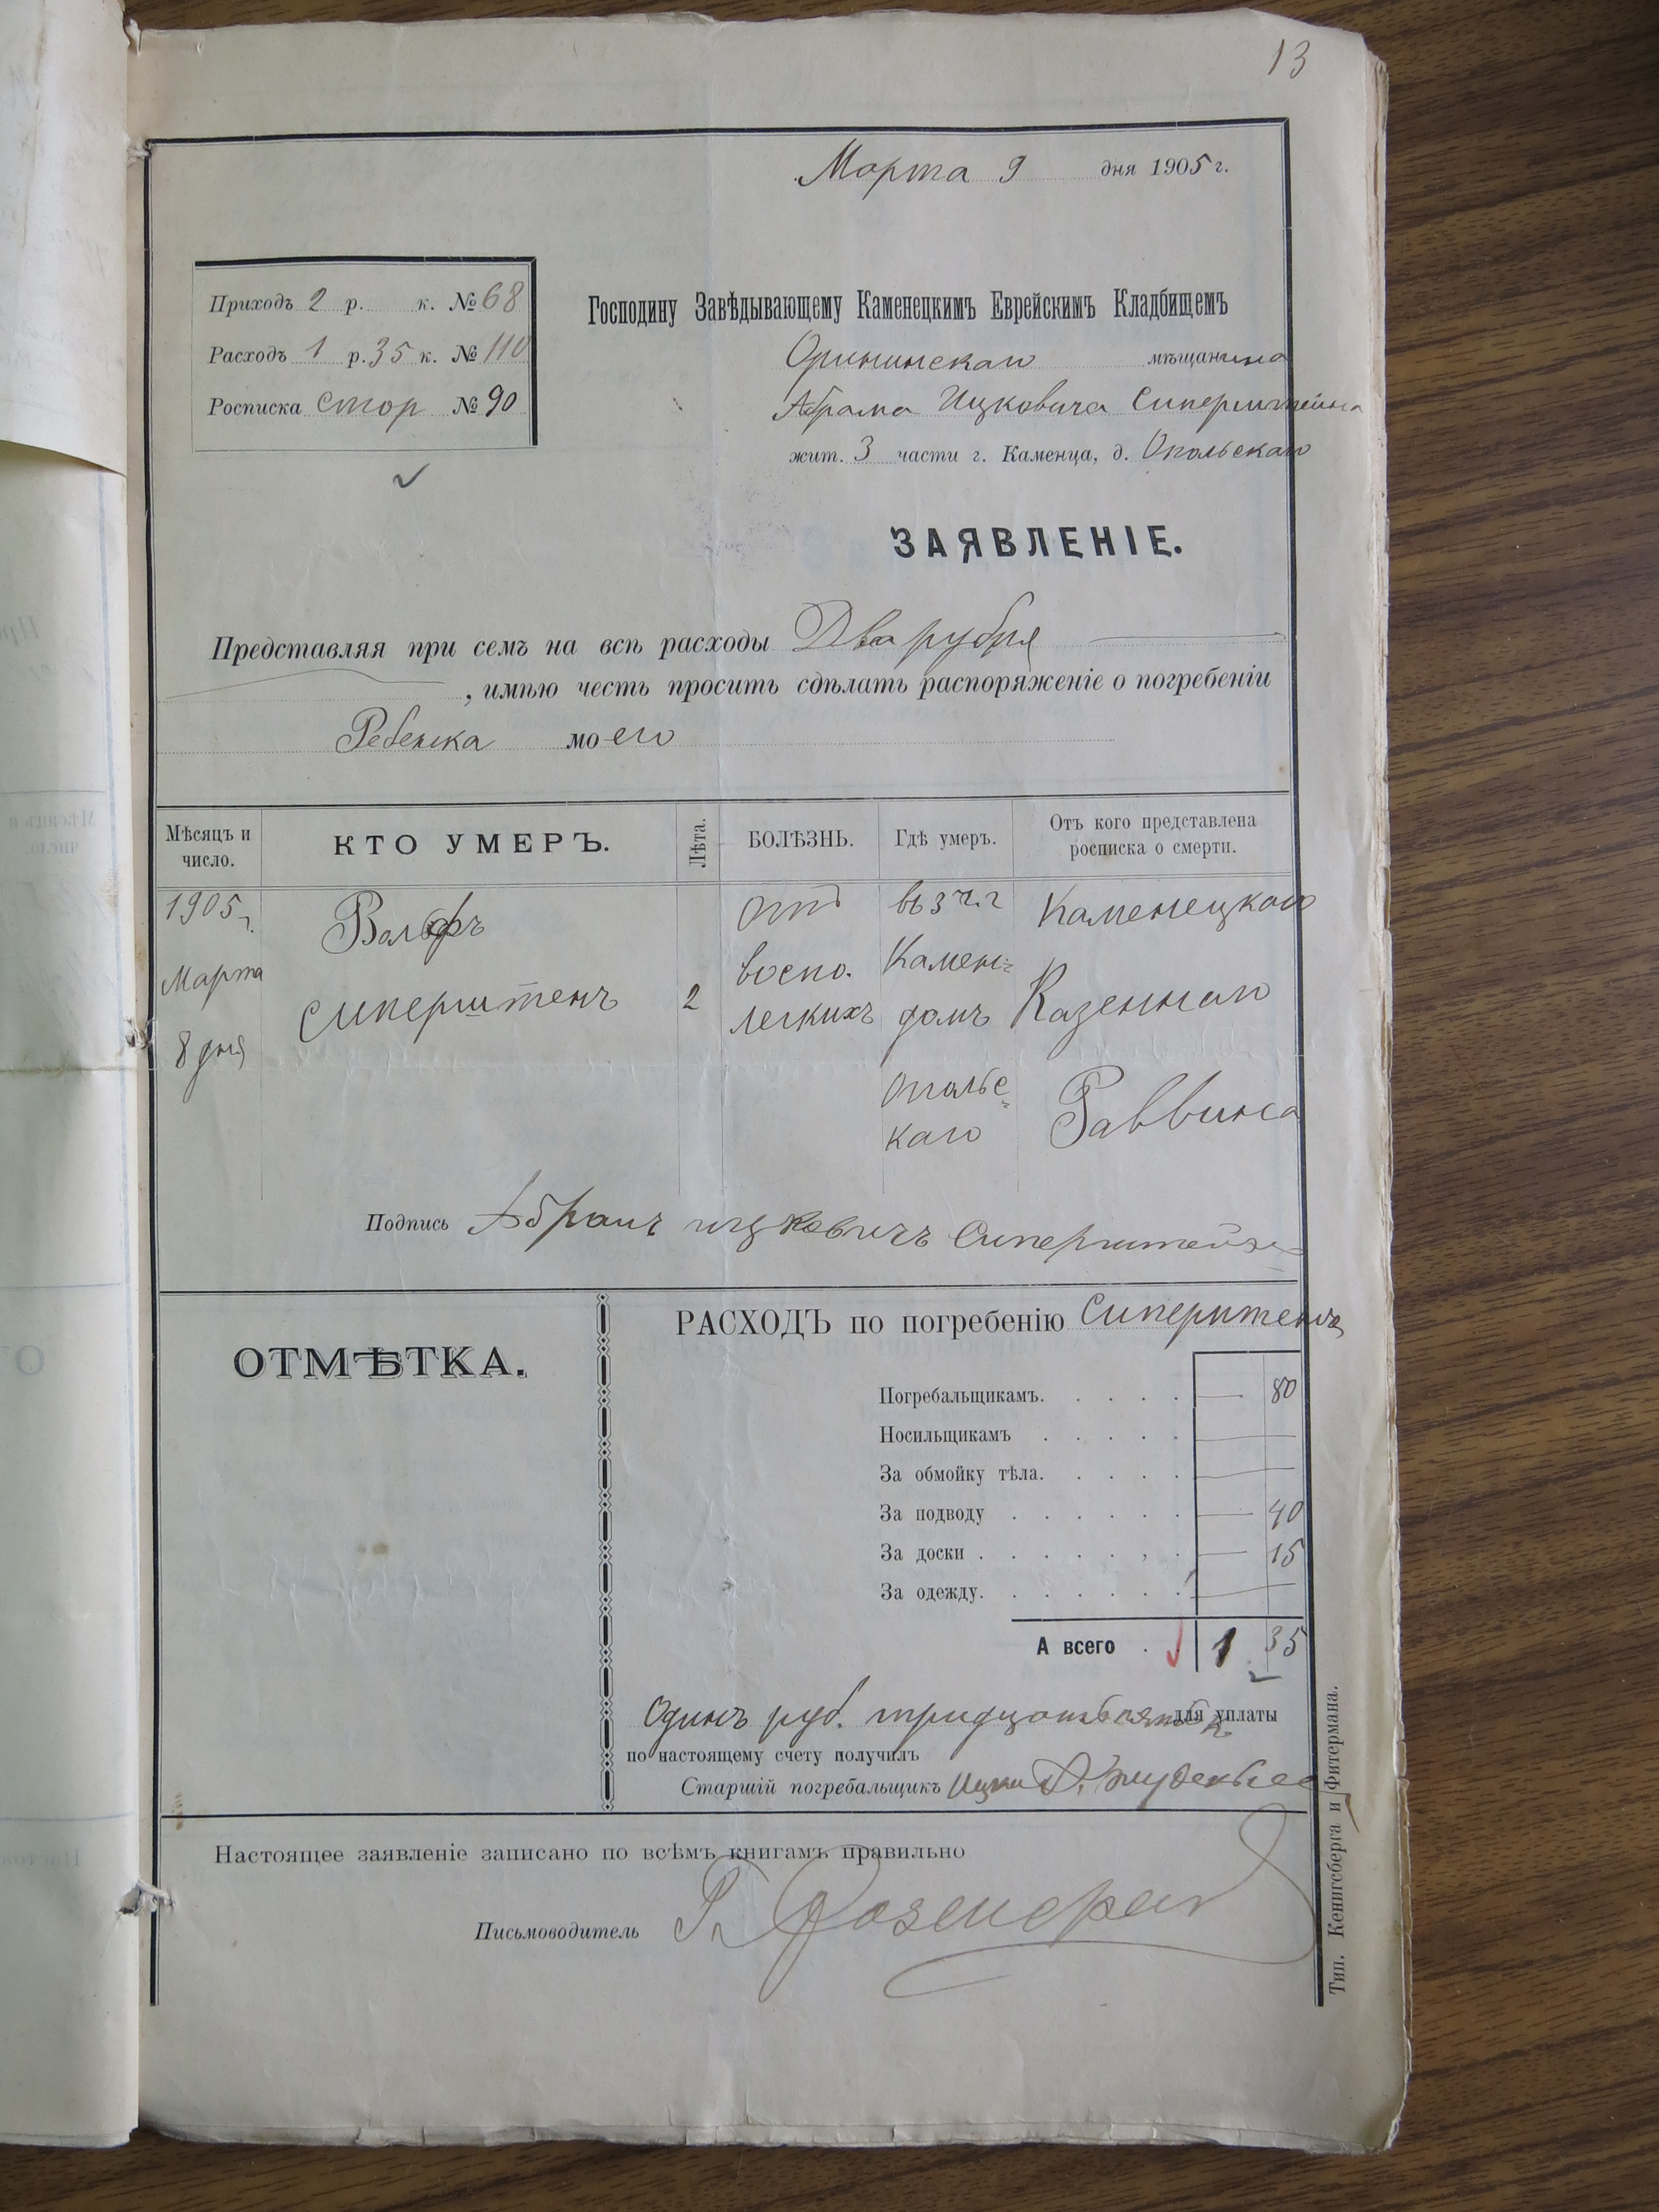 13
Марта 9 дня 1905 г.
Приходъ 2 р. к. № 68
Расходъ 1 р. 35 к. № 110
Росписка стор № 90
Господину Завѣдывающему Каменецкимъ Еврейскимъ Кладбищемъ
Орининскаго мѣщанина
Абрама Ицковича Сиперштейна
жит. 3 части г. Каменца, д. Опольскаго
ЗАЯВЛЕНІЕ.
Представляя при семъ на всѣ расходы Два рубля
, имѣю честь просить сдѣлать распоряженіе о погребеніи
Ребенка моего
Мѣсяцъ и число.
КТО УМЕРЪ.
Лѣта.
БОЛѢЗНЬ.
Гдѣ умеръ.
Отъ кого представлена росписка о смерти.
1905 г.
Марта
8 дня
Вольфъ
Сиперштенъ
2
отъ
воспо.
легкихъ
въ 3 ч. г
Камен=
домъ
Опольс=
каго
Каменецкаго
Казеннаго
Раввина
Подпись Абрамъ Ицковичъ Сиперштейн
ОТМѢТКА.
РАСХОДЪ по погребенію Сиперштенъ
Погребальщикамъ. . . . . — 80
Носильщикамъ . . . . . —
За обмойку тѣла. . . . . —
За подводу . . . . . . — 40
За доски . . . . . , . — 15
За одежду. . . . . . . —
А всего . . 1 35
Одинъ руб. тридцать пять к. для уплаты
по настоящему счету получилъ
Старшій погребальщикъ
Настоящее заявленіе записано по всѣмъ книгамъ правильно
Письмоводитель
Тип. Кенигсберга и Фитермана.